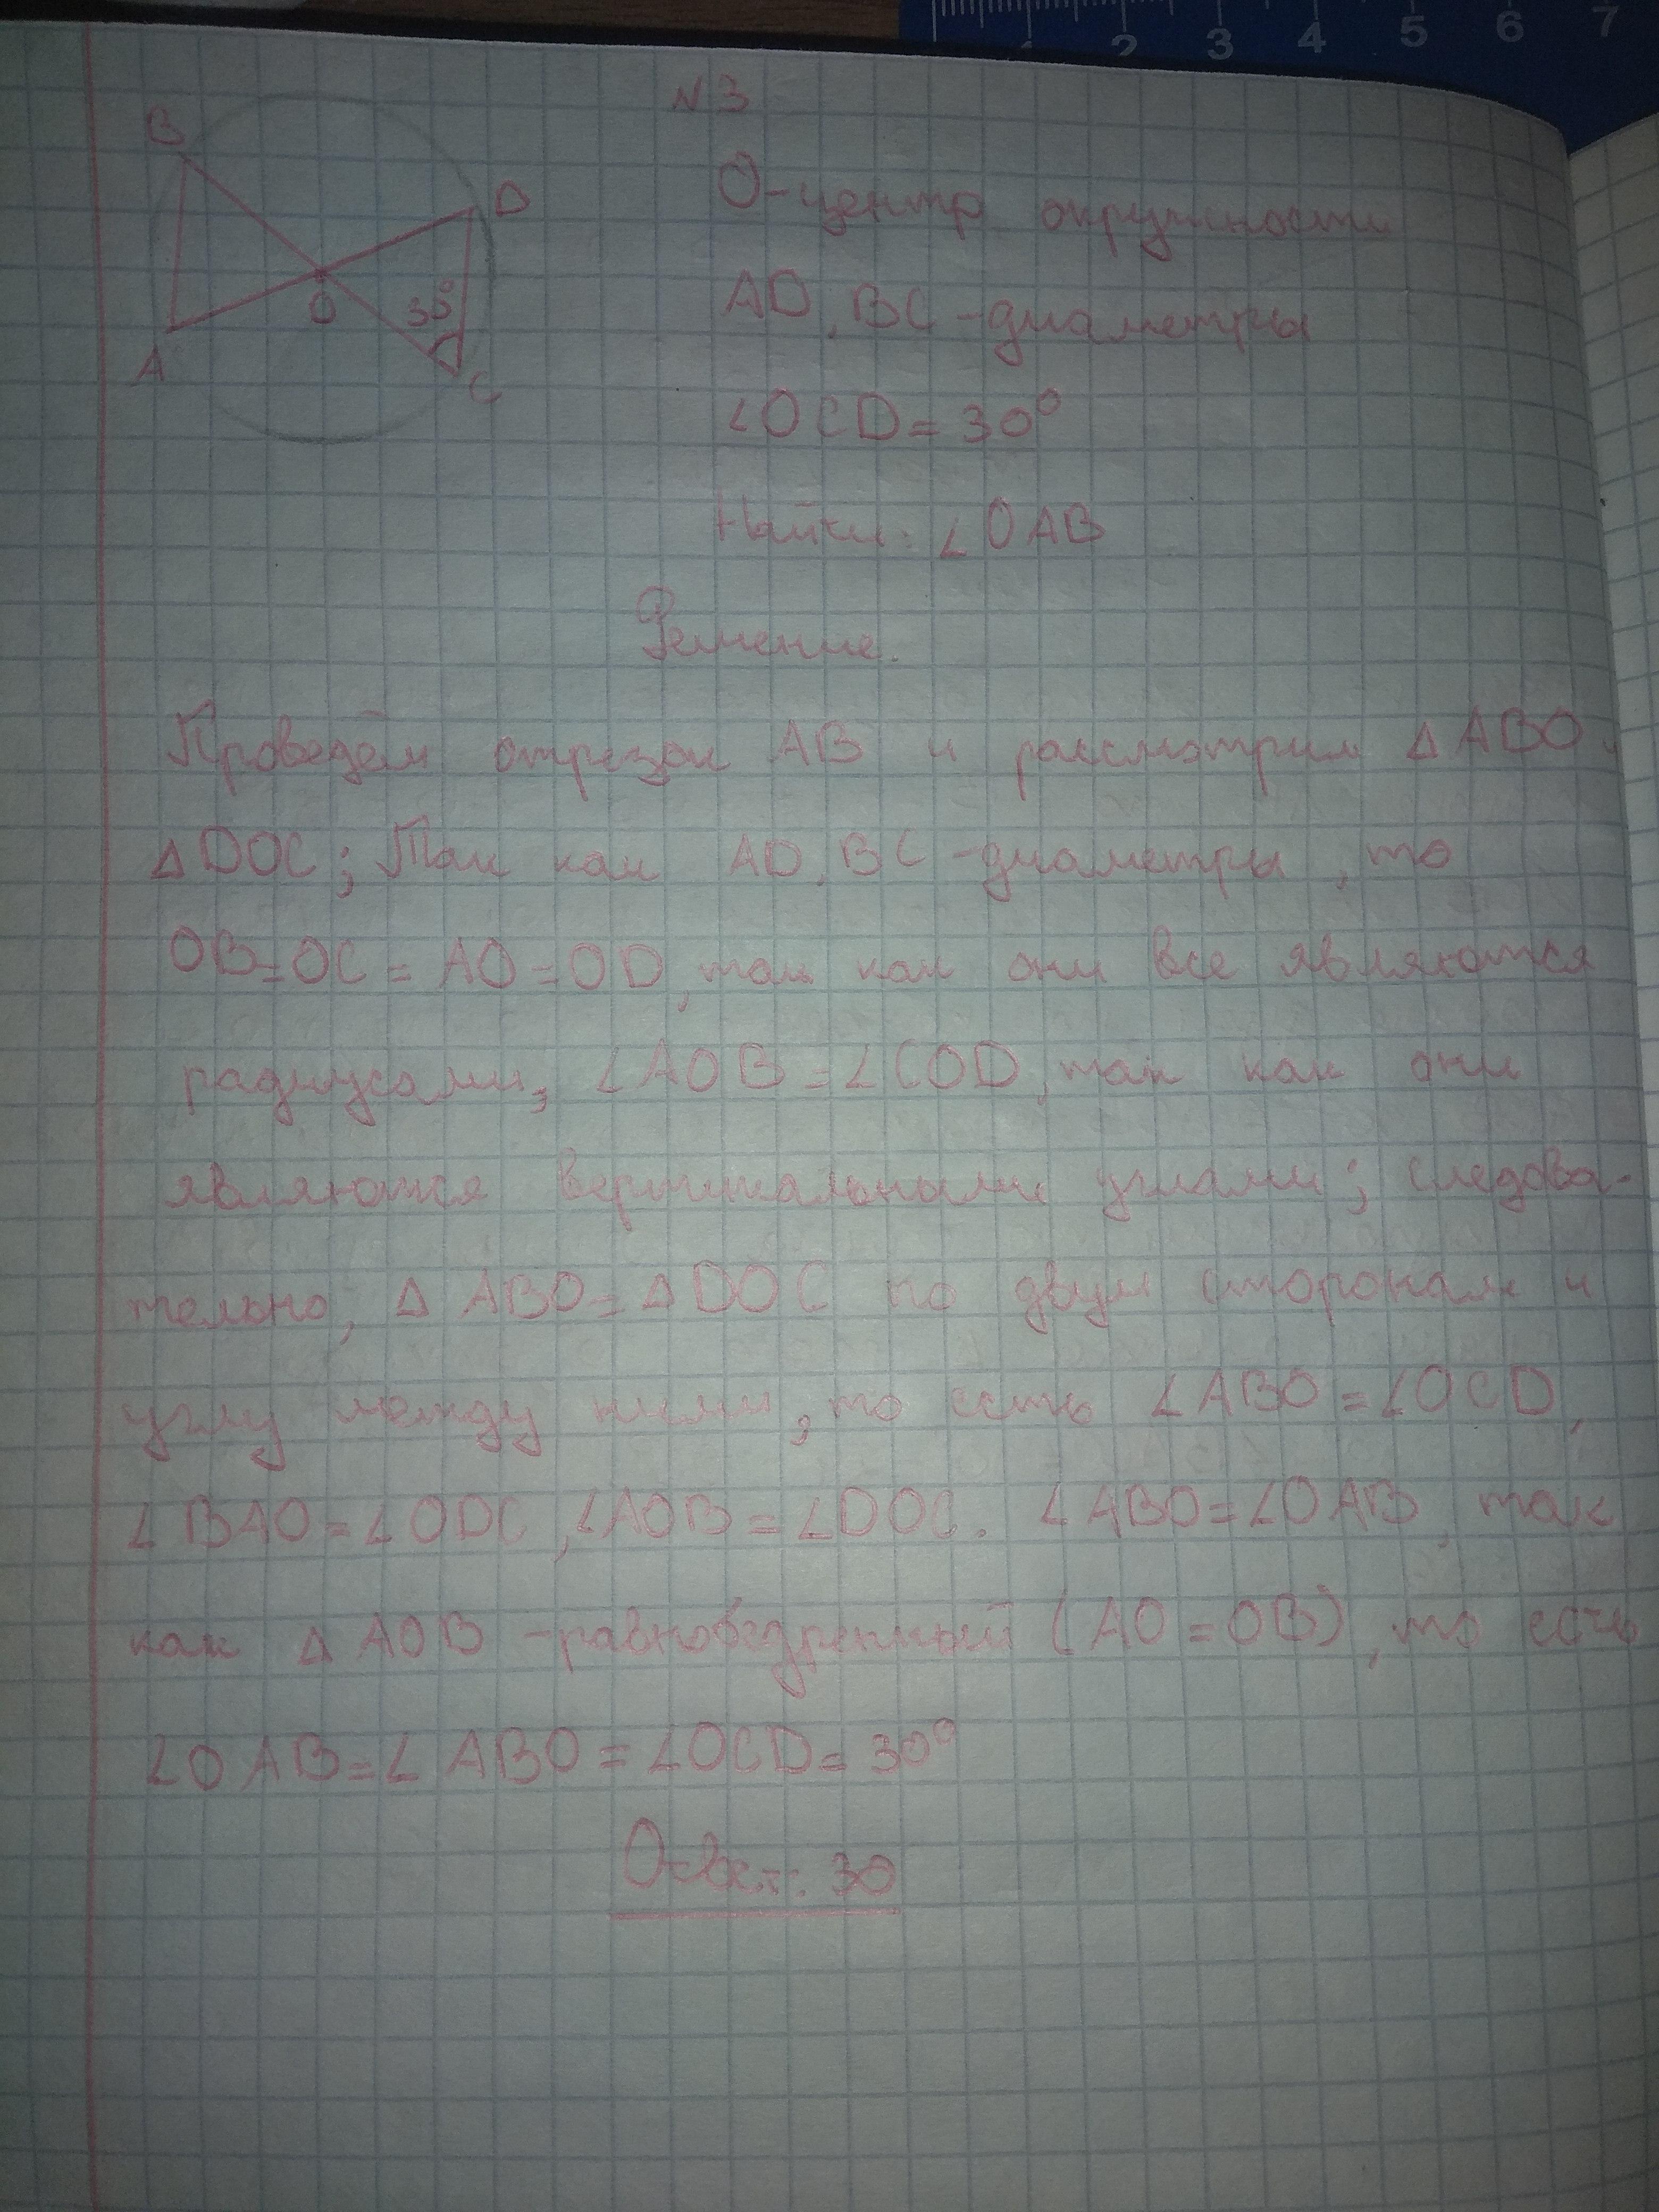 1 2 3 4 5 6 7
N3
B
D
O
30°
A
C
O-центр окружности
AD, BC-диаметры
∠OCD=30°
Найти: ∠OAB
Решение.
Проведём отрезок AB и рассмотрим △ABO,
△DOC; Так как AD, BC-диаметры, то
OB=OC=AO=OD, так как они все являются
радиусами, ∠AOB=∠COD, так как они
являются вертикальными углами; следова-
тельно, △ABO=△DOC по двум сторонам и
углу между ними, то есть ∠ABO=∠OCD,
∠BAO=∠ODC, ∠AOB=∠DOC. ∠ABO=∠OAB, так
как △AOB-равнобедренный (AO=OB), то есть
∠OAB=∠ABO=∠OCD=30°
Ответ: 30